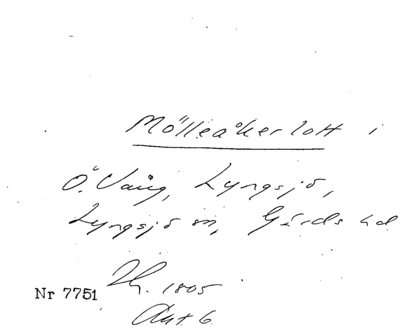 Mölleåkerlott i
Ö. Vång, Lyngsjö,
Lyngsjö sn, Gärds hd
Nr 7751
1805
Akt 6